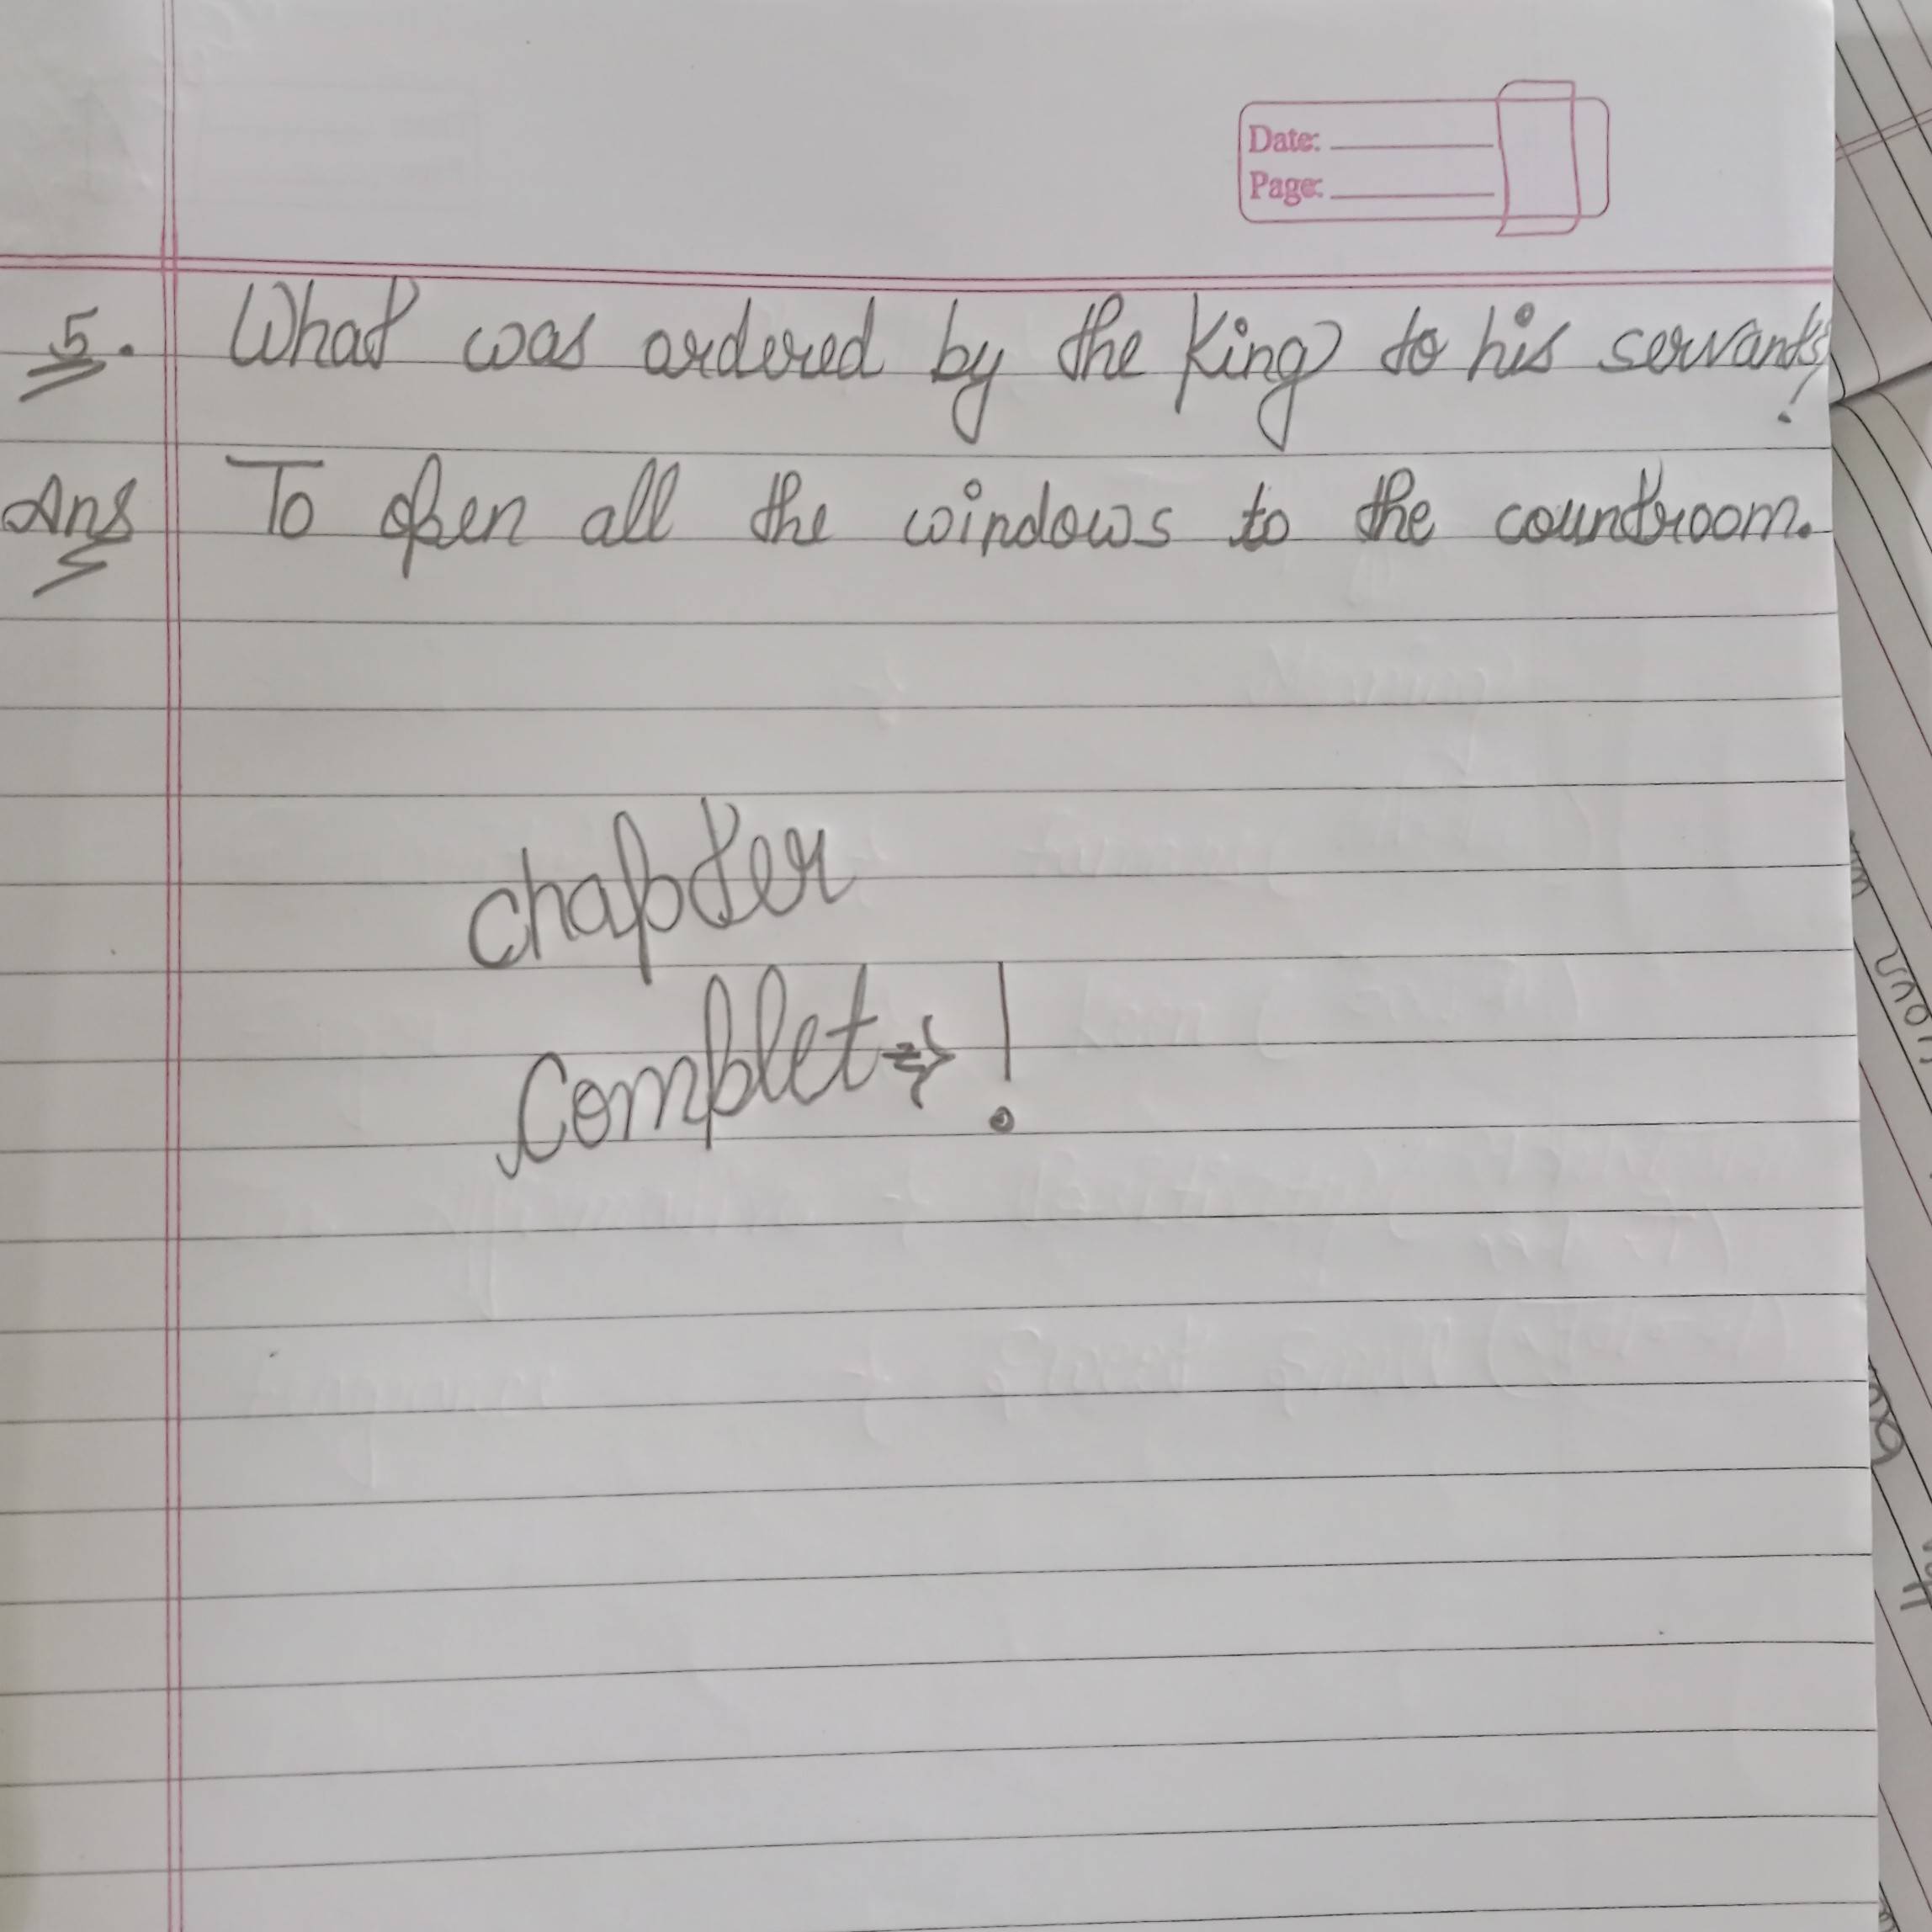 Date:
Page:
5. What was ordered by the King to his servants!
Ans To open all the windows to the countroom.
chapter
complet⇒!